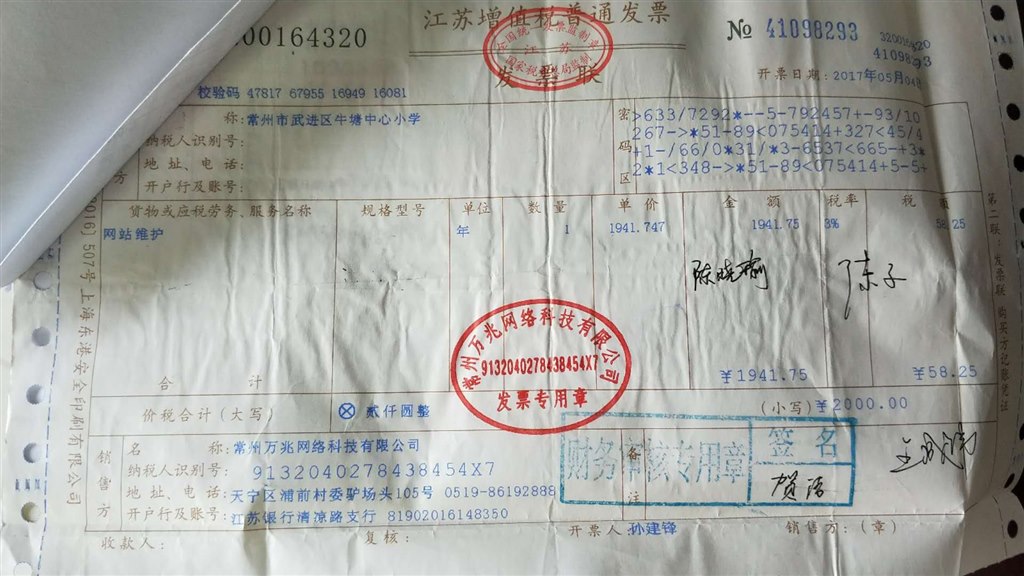 江苏增值税普通发票
发票联
00164320
№ 41098293
3200164320
41098293
开票日期: 2017年05月04日
校验码 47817 67955 16949 16081
称: 常州市武进区牛塘中心小学
纳税人识别号:
地址、电话:
开户行及账号:
方
密码区
>633/7292*--5-792457+-93/10
267->*51-89<075414+327<45/4
+1-/66/0*31/*3-6537<665-+3*
2*1<348->*51-89<075414+5-5+
货物或应税劳务、服务名称 规格型号 单位 数量 单价 金额 税率 税额
网站维护 年 1 1941.747 1941.75 3% 58.25
陈晓 陈子
合计 ¥1941.75 ¥58.25
价税合计(大写) ⊗ 贰仟圆整 (小写) ¥2000.00
常州万兆网络科技有限公司
9132040278438454X7
发票专用章
销售方
名称: 常州万兆网络科技有限公司
纳税人识别号: 9132040278438454X7
地址、电话: 天宁区浦前村委驴场头105号 0519-86192888
开户行及账号: 江苏银行清凉路支行 81902016148350
备注
财务审核专用章
签名
贺语
收款人: 复核: 开票人: 孙建锋 销售方:(章)
第二联:发票联 购买方记账凭证
507号上海东港安全印刷有限公司